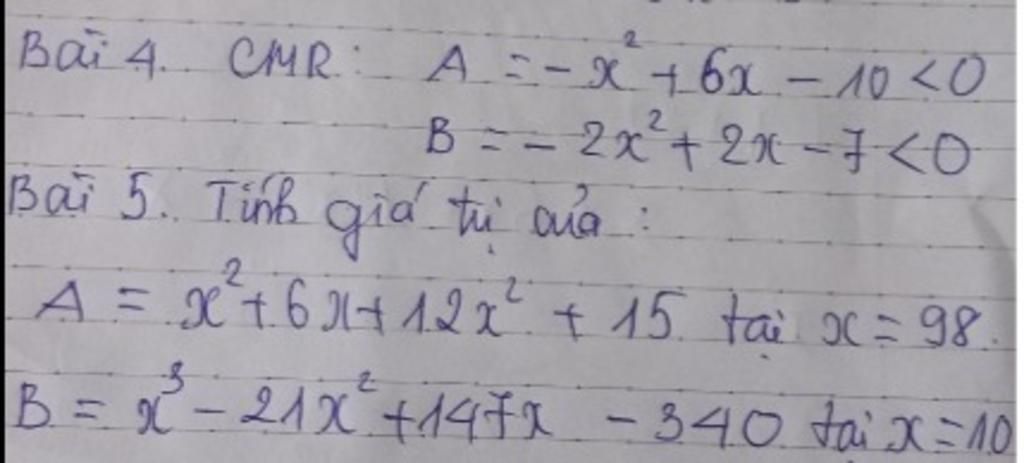 Bài 4. CMR: A = -x² + 6x - 10 < 0
B = - 2x² + 2x - 7 < 0
Bài 5. Tính giá trị của :
A = x² + 6x + 12x² + 15 tại x = 98.
B = x³ - 21x² + 147x - 340 tại x = 10